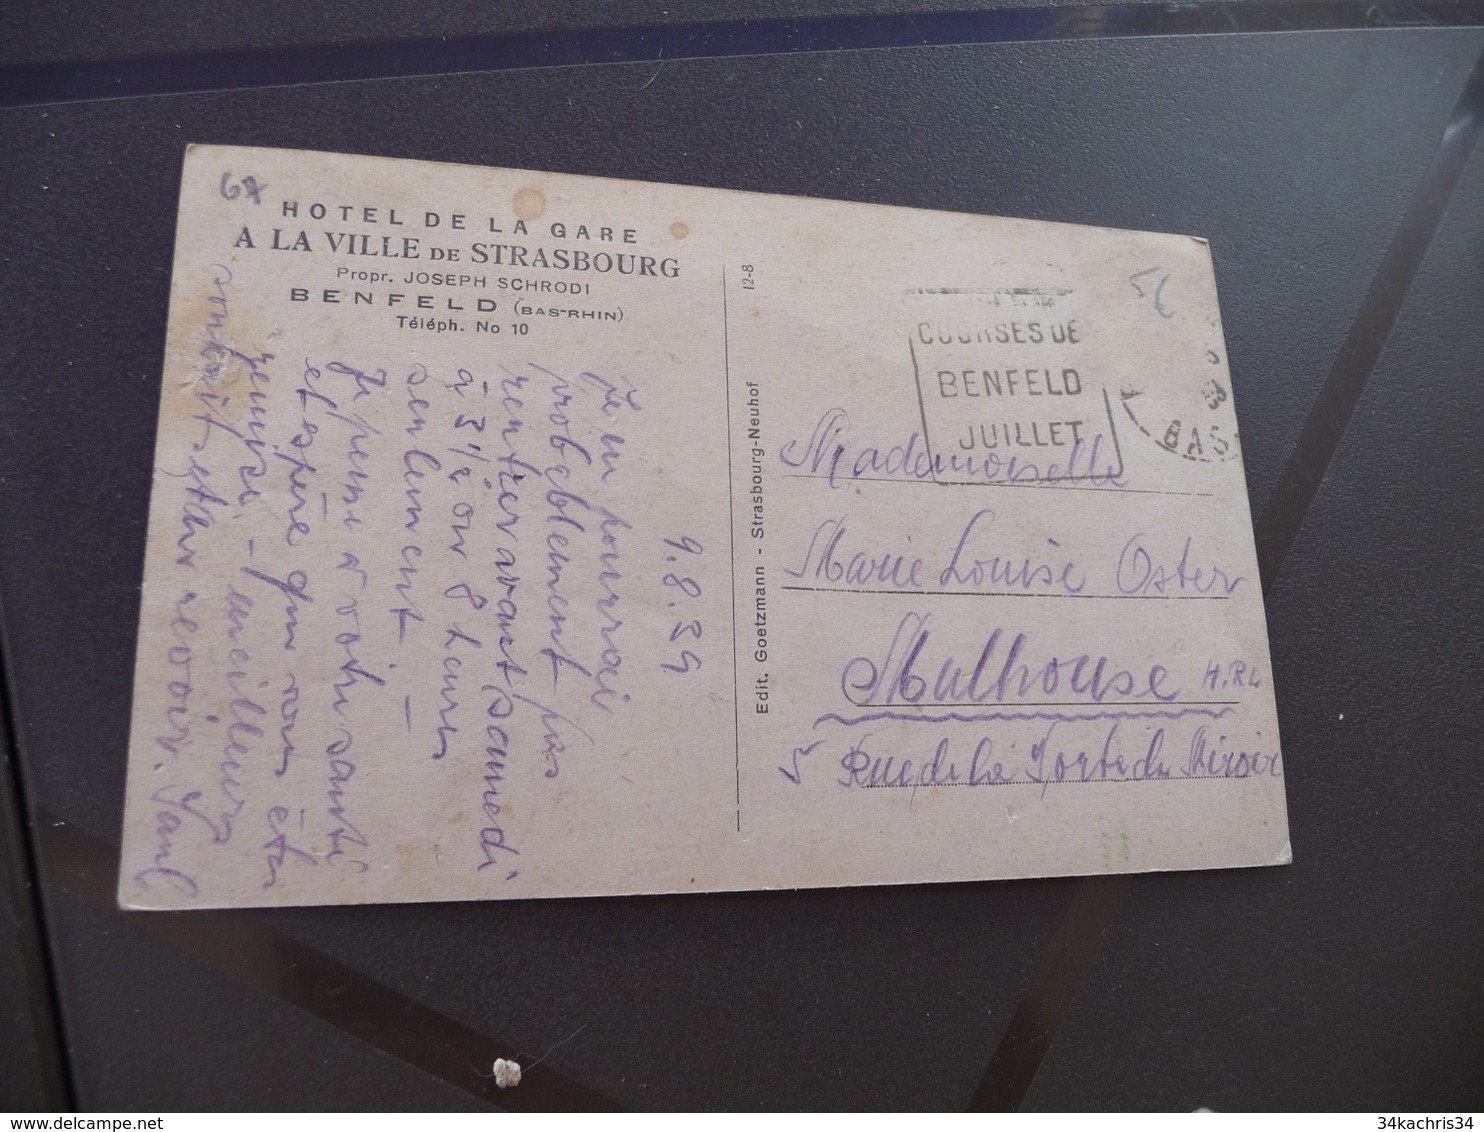 67
HOTEL DE LA GARE
A LA VILLE DE STRASBOURG
Propr. JOSEPH SCHRODI
BENFELD (BAS-RHIN)
Téléph. No 10
9.8.39
Je ne pourrai
probablement pas
rentrer avant samedi
à 3 1/2 ou 8 heures
seulement. -
Je pense à votre santé
et espère que vous êtes
remise. - meilleurs
et au revoir. Paul
12-8
Edit. Goetzmann - Strasbourg-Neuhof
5€
COURSES DE
BENFELD
JUILLET
BAS
Mademoiselle
Marie Louise Oster
Mulhouse H.Rh
5 Rue de la Porte du Miroir
34kachris34